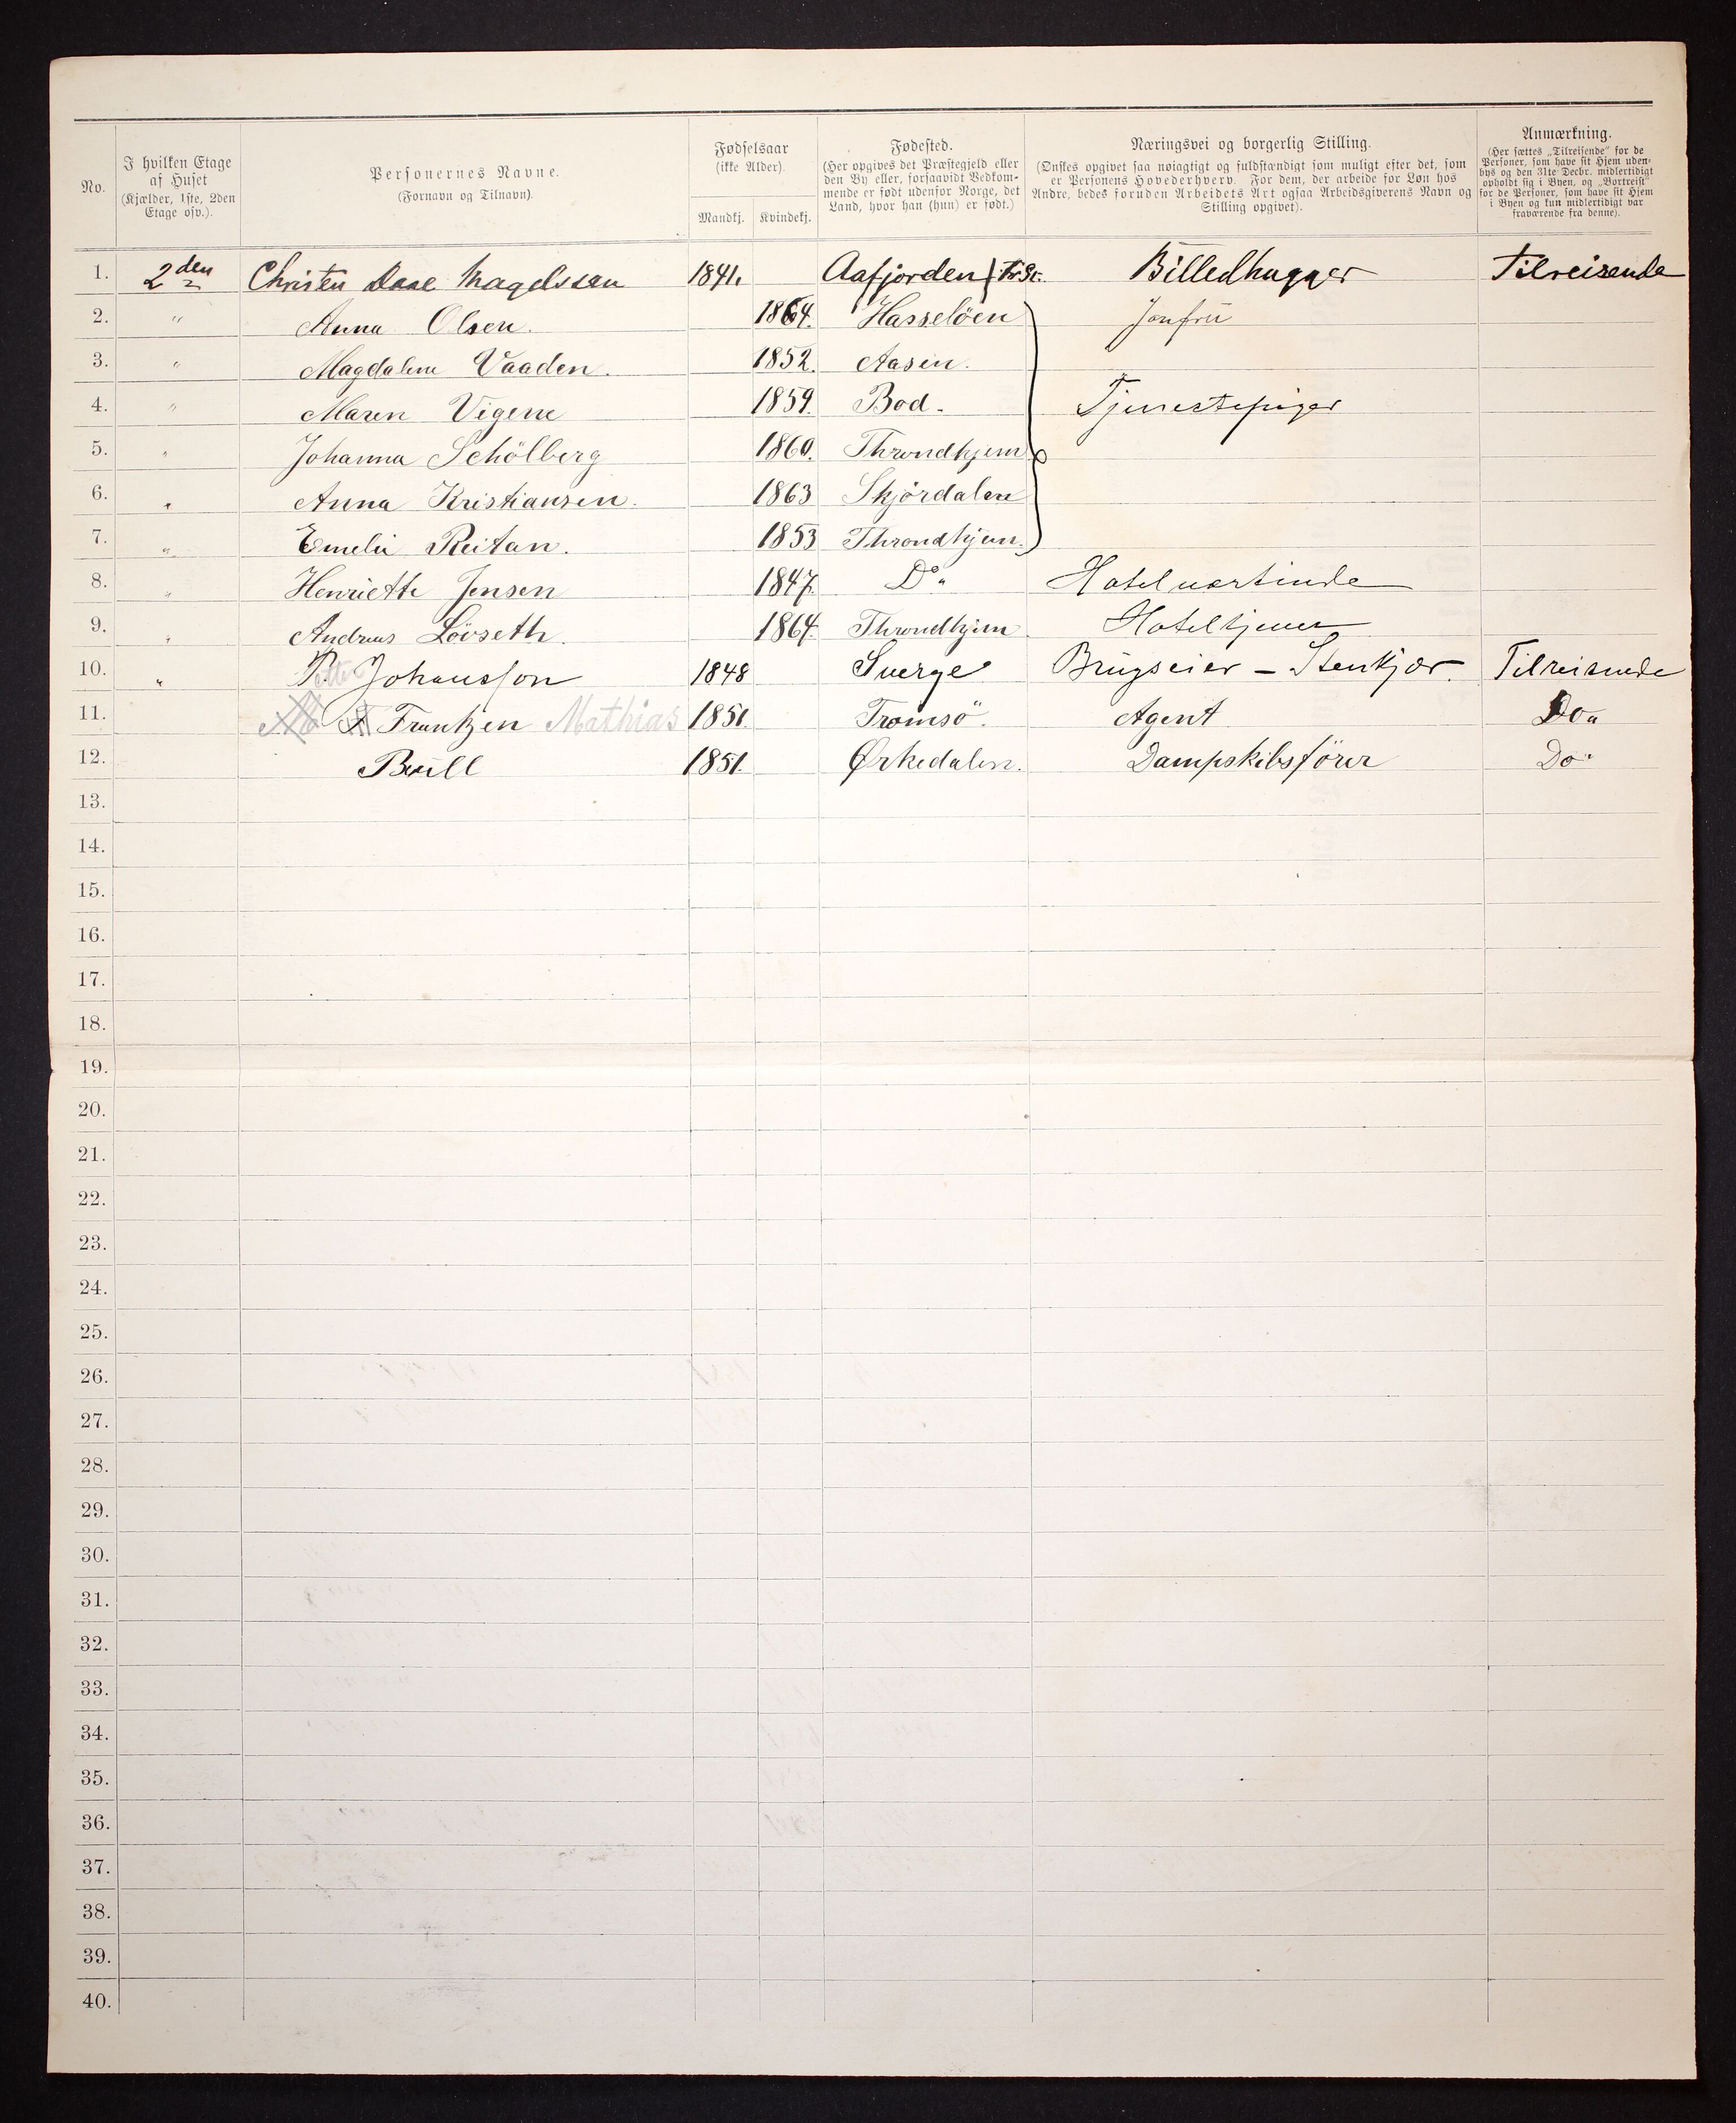 No.
I hvilken Etage af Huset (Kjælder, 1ste, 2den Etage osv.).
Personernes Navne. (Fornavn og Tilnavn).
Fødselsaar (ikke Alder).
Mandkj. Kvindekj.
Fødested. (Her opgives det Præstegjeld eller den By eller, forsaavidt Vedkommende er født udenfor Norge, det Land, hvor han (hun) er født.)
Næringsvei og borgerlig Stilling. (Ønskes opgivet saa nøiagtigt og fuldstændigt som muligt efter det, som er Personens Hovederhverv. For dem, der arbeide for Løn hos Andre, bedes foruden Arbeidets Art ogsaa Arbeidsgiverens Navn og Stilling opgivet).
Anmærkning. (Her sættes „Tilreisende" for de Personer, som have sit Hjem udenbys og den 31te Decbr. midlertidigt opholdt sig i Byen, og „Bortreist" for de Personer, som have sit Hjem i Byen og kun midlertidigt var fraværende fra denne).
1. 2den Christen Daae Magelssen 1841. Aafjorden Billedhugger Tilreisende
2. " Anna Olsen. 1864. Hasselöen Jonfrü
3. " Magdalene Vaaden. 1852. Aasen.
4. " Maren Vigene 1859. Bod. Tjenestepiger
5. " Johanna Schölberg 1860. Throndhjem
6. " Anna Kristiansen. 1863 Skjördalen
7. " Emelie Reitan. 1853 Throndhjem.
8. " Henriette Jensen 1847. Do " Hotelvertinde
9. " Andreas Lövseth. 1864. Throndhjem Hoteltjener
10. " P. etter Johansson 1848 Sverge Brügseier - Stenkjær. Tilreisende
11. Frantzen Mathias 1851. Tromsö. Agent Do "
12. Büll 1851. Ørkedalen. Dampskibsförer Do "
13.
14.
15.
16.
17.
18.
19.
20.
21.
22.
23.
24.
25.
26.
27.
28.
29.
30.
31.
32.
33.
34.
35.
36.
37.
38.
39.
40.